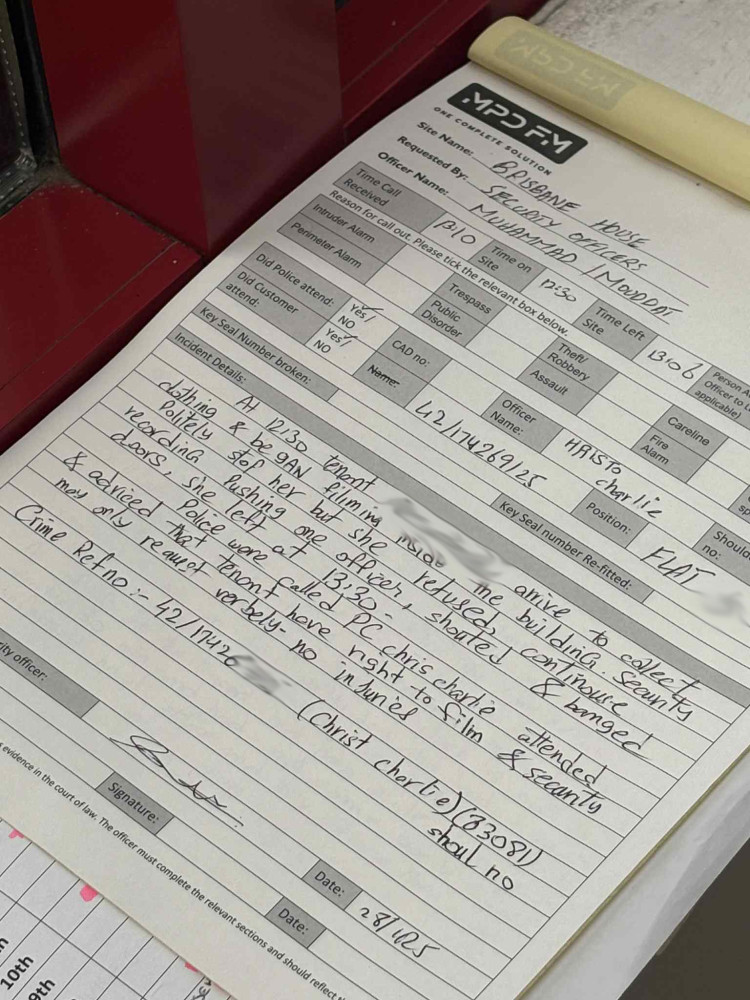 MPD FM
ONE COMPLETE SOLUTION
Site Name: BRISBANE HOUSE
Requested By: SECURITY OFFICERS
Officer Name: MUHAMMAD / MOUDDAT
Time Call Received Time on Site 12:30 Time Left Site 13:06 Person A
Officer to
applicable)
Reason for call out. Please tick the relevant box below.
Intruder Alarm Trespass Theft/ Robbery Careline
Perimeter Alarm Public Disorder Assault Fire Alarm
Did Police attend: Yes/ NO CAD no: 42/174269/25 Officer Name: HRISTO charlie Should
no:
Did Customer attend: Yes/ NO Name: Position: FLAT
Key Seal Number broken: Key Seal number Re-fitted:
Incident Details:
At 12:30 tenant arrive to collect
clothing & began filming inside the building. Security
Politely stop her but she refused, continouse
recording Pushing one officer, shouted & banged
doors, she left at 13:30-
Police were called PC chris charlie attended
& adviced that tenant have right to film & security
may only request verbely- no injuries
Crime Ref no:- 42/1742 (Christ charlie) (83081)
shoul no
rity officer:
Signature: Date: 28/1/25
Date:
s evidence in the court of law. The officer must complete the relevant sections and should reflect th
10th
9th